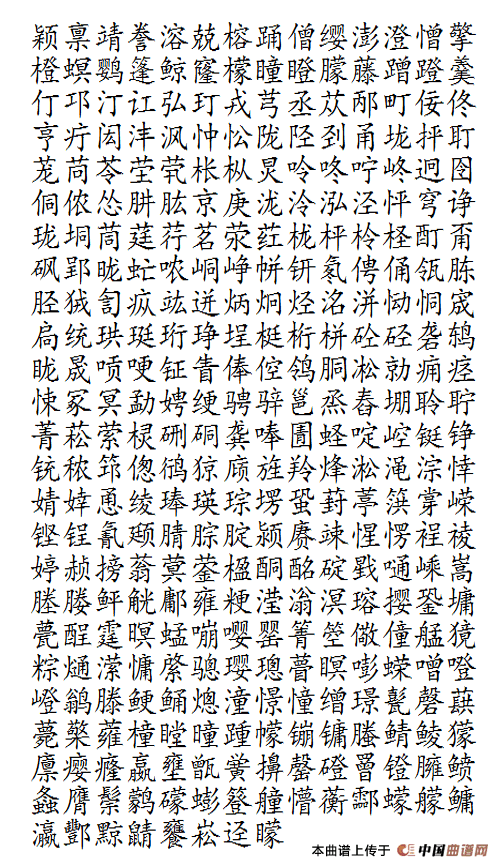 颖禀靖誊溶兢榕踊僧缨澎澄憎擎
橙螟鹦篷鲸窿檬瞳瞪朦藤蹭蹬羹
仃邛汀讧弘玎戎芎丞苁邴町佞佟
亨疔闳沣沨忡忪陇陉刭甬垅抨耵
茏苘苓茔茕枨枞炅呤咚咛峂迥囹
侗侬怂肼肱京庚泷泠泓泾怦穹诤
珑垌茼莛荇茗荥荭栊枰柃柽酊甭
砜郢昽虻哝峒峥帡钘氡俜俑瓴胨
胫狨訇疯竑迸炳炯烃洺洴恸恫宬
扃统珙珽珩琤埕梃桁栟硁硎砻鸫
眬晟唝哽钲眚俸倥鸽胴凇勍痈痉
悚冢冥勐娉绠骋骍邕烝舂堋聆聍
菁菘萦梮硎硐龚唪圊蛏啶崆铤铮
铳秾筇偬鸻猄庼旌羚烽淞渑淙悻
婧婞恿绫琫瑛琮堎蛩葑葶筼穿嵘
铿锃氰颋腈腙腚颍赓竦惺愣裎祾
婷赪搒蓊蓂蓥楹酮酩碇戥嗵嵊嵩
塍媵鲆觥鄘雍粳滢滃溟瑢撄銎墉
甍酲霆暝蜢嘣嘤罂箐箜儆僮艋獍
粽熥潆慵綮骢璎璁瞢瞑嘭蝾噌噔
嶝鹟滕鲠鲬熜潼憬憧缯璟氅磬蕻
薨檠蕹橦瞠曈踵幪镚镛螣鲭鲮獴
廪瘿癃嬴壅甑黉擤罄磴罾镫臃鲼
螽膺鬃鹲礞蟛簦艟懵蘅酃蠓艨鳙
瀛酆黥鼱饔崧迳矇
本曲谱上传于 中国曲谱网